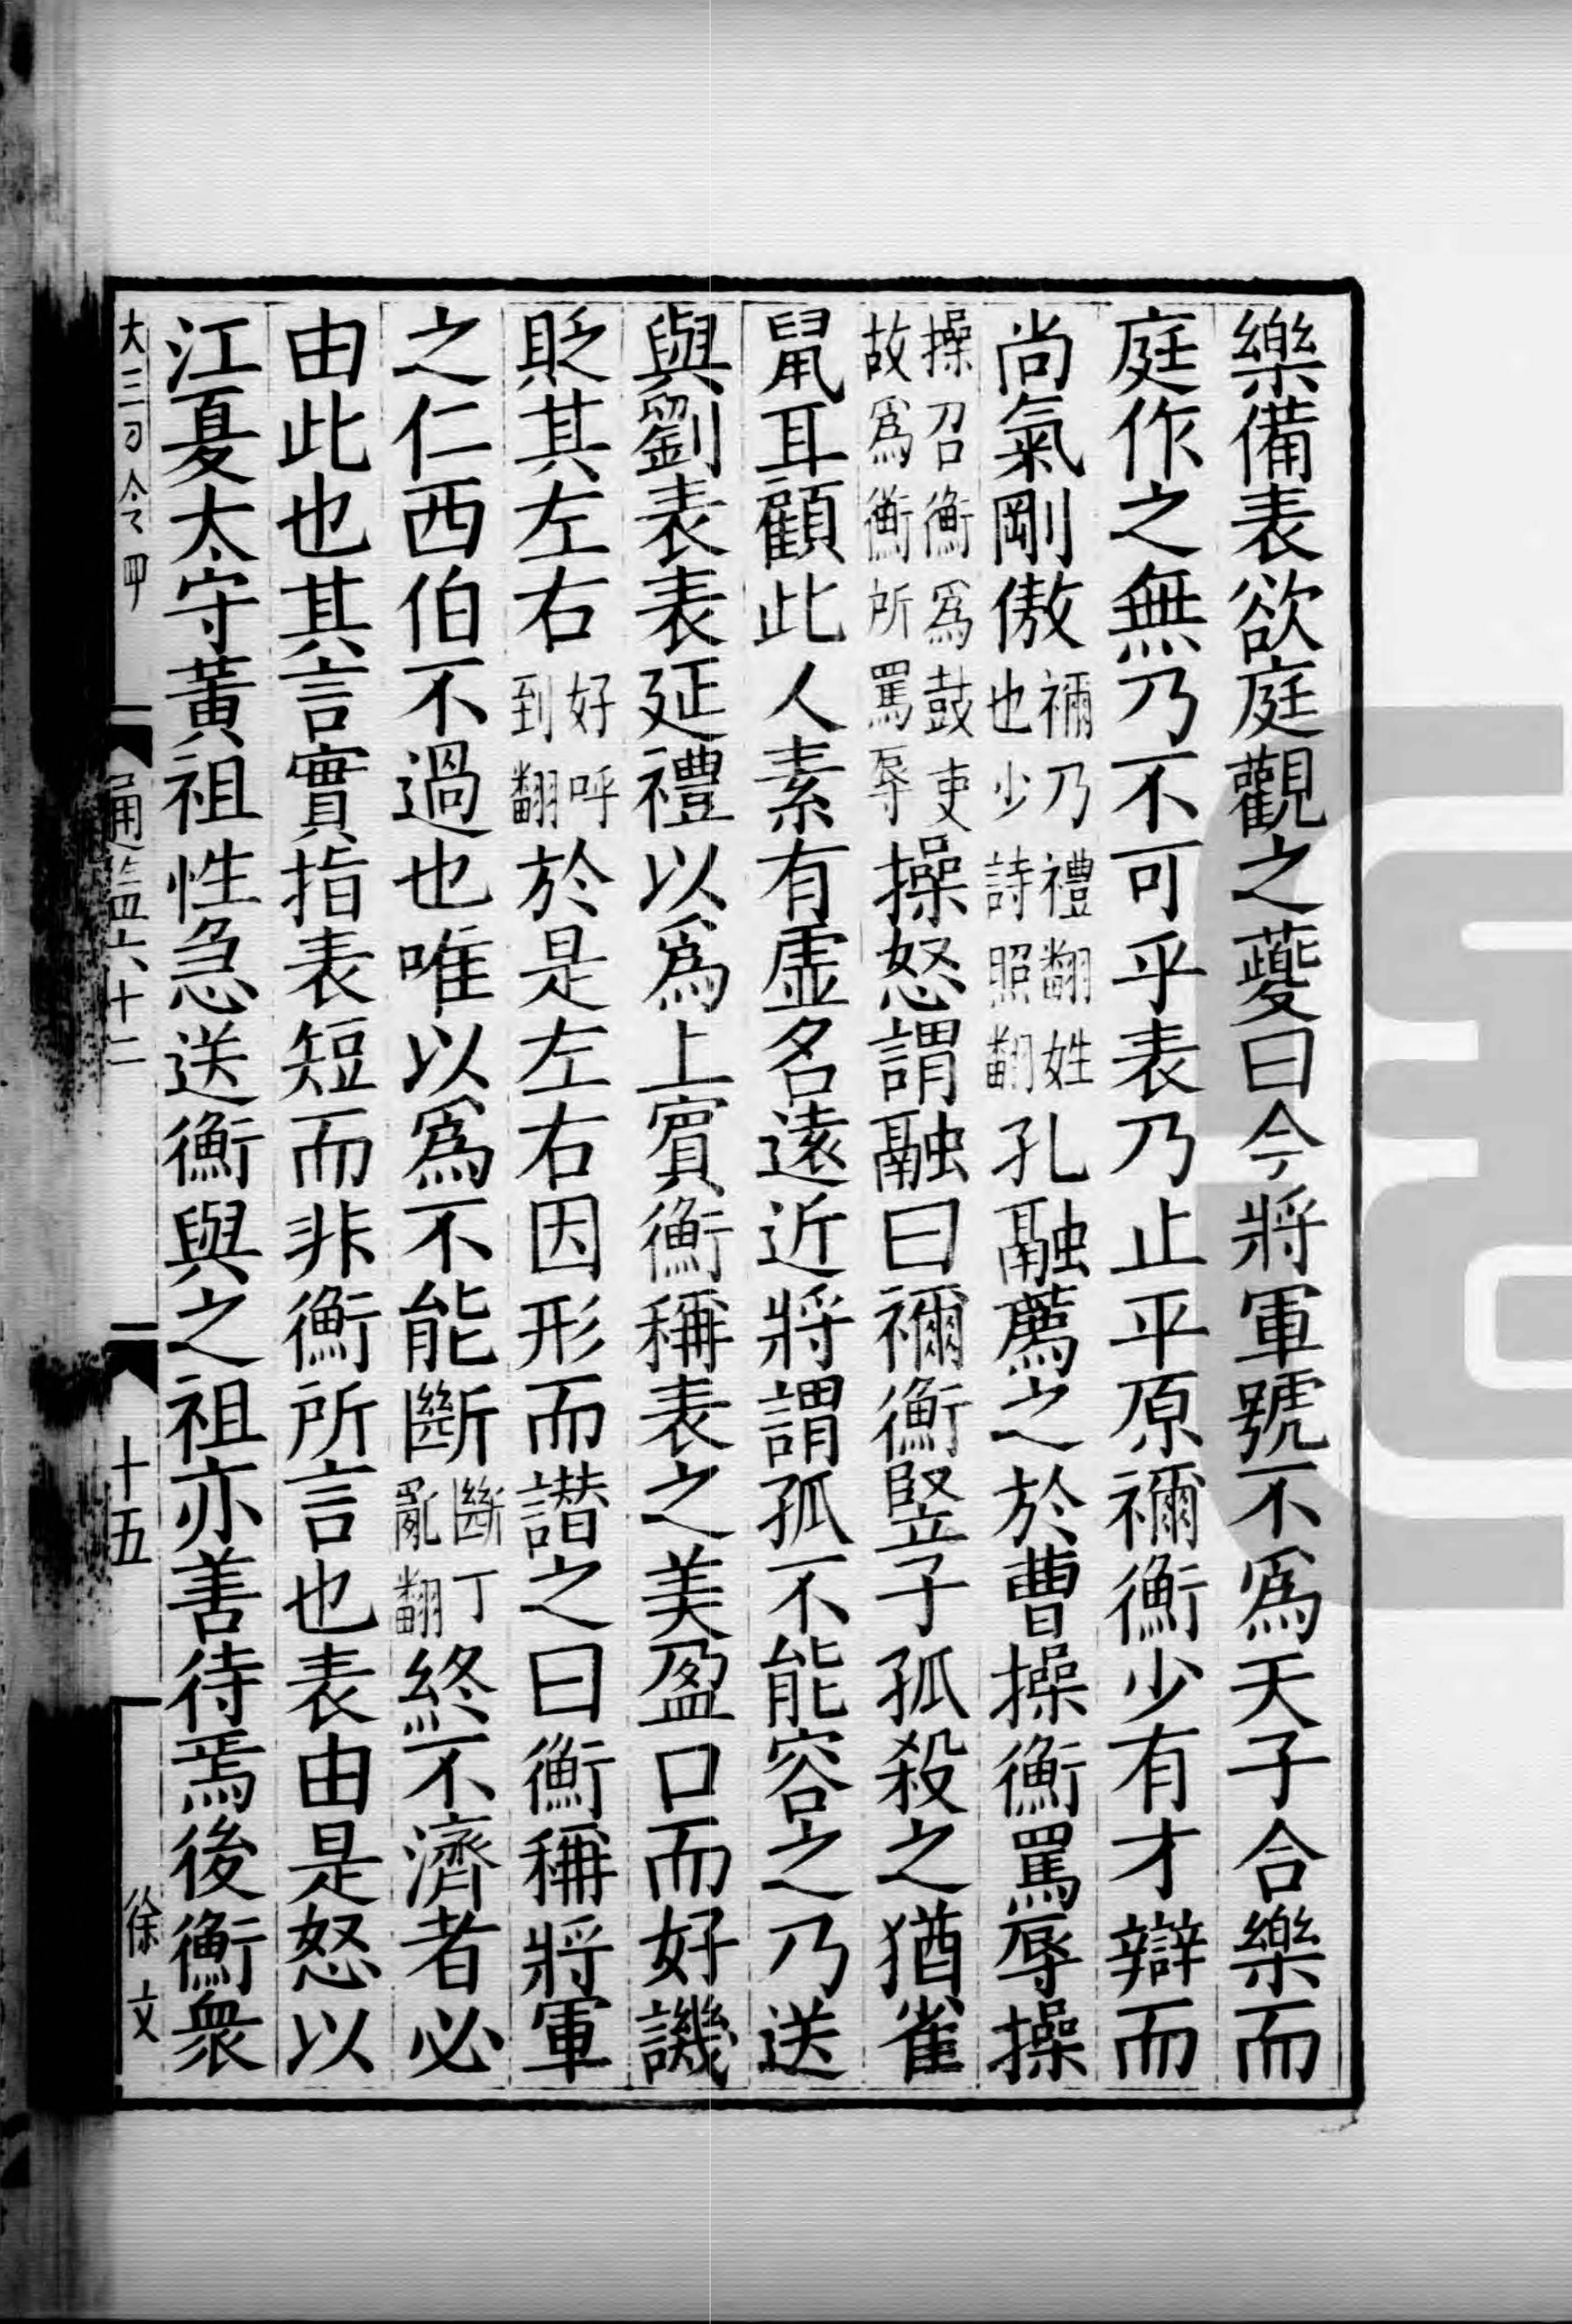 樂備表欲庭觀之夔曰今將軍號不爲天子合樂而
庭作之無乃不可乎表乃止平原禰衡少有才辯而
尚氣剛傲禰乃禮翻姓也少詩照翻孔融薦之於曹操衡罵辱操
操召衡爲鼓吏故爲衡所罵辱操怒謂融曰禰衡豎子孤殺之猶雀
鼠耳顧此人素有虛名遠近將謂孤不能容之乃送
與劉表表延禮以爲上賓衡稱表之美盈口而好譏
貶其左右好呼到翻於是左右因形而譖之曰衡稱將軍
之仁西伯不過也唯以爲不能斷斷丁亂翻終不濟者必
由此也其言實指表短而非衡所言也表由是怒以
江夏太守黃祖性急送衡與之祖亦善待焉後衡衆
六十二
十五
徐文